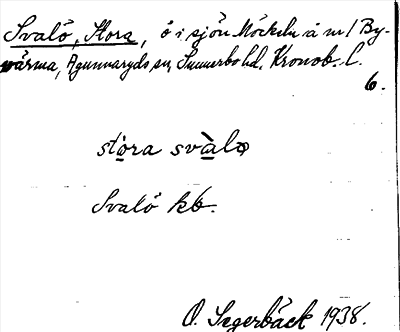 Svalö, Stora, ö i sjön Möckeln å nr 1 By-
värma, Agunnaryds sn, Sunnerbo hd, Kronob. l.
6.
stóra svàlø
Svalö kb.
O. Segerbäck 1938.